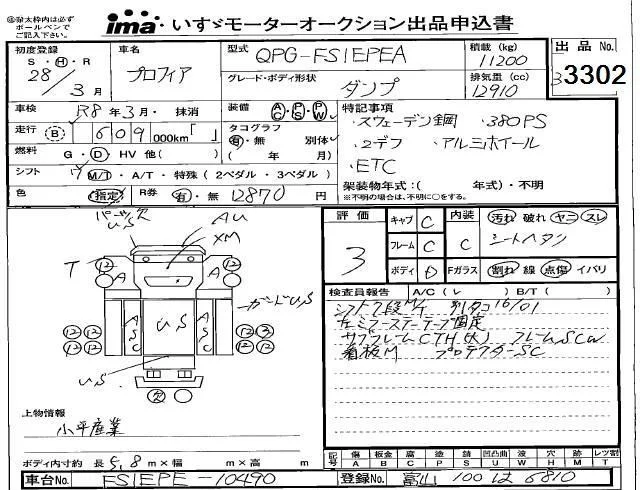 ◎最大枠内は必ず
ボールペンで
ご記入下さい。
ima・いすゞモーターオークション出品申込書
初度登録
S・H・R
28/3月
車名
プロフィア
型式
QPG-FS1EPEA
グレード・ボディ形状
ダンプ
積載 (kg)
11200
排気量 (cc)
12910
出品 No.
3302
車検
R8年3月・抹消
走行 B 609 000km「 」
燃料 G・D・HV 他( )
シフト 7 M/T・A/T・特殊 (2ペダル・3ペダル)
色 指定 R券 有・無 12870 円
装備 AC PS PW
タコグラフ
有・無 別体
( 年 月)
特記事項
・スウェーデン鋼 ・380PS
・2デフ ・アルミホイール
・ETC
架装物年式:( 年式)・不明
※不明の場合は、不明に○をする。
評価
3
キャブ C
フレーム C
ボディ D
内装 汚れ 破れ ヤニ スレ
シートヘタリ
Fガラス 割れ 線 点傷 イバリ
検査員報告 A/C (レ ) B/T ( )
シフト7段M/T 別タコ16/01
左ミラーステーテープ固定
サブフレームCTH(大) フレームSCW
看板M プロテクターSC
パーツ欠
US
AU
XM
T
ガードUS
12 12
A A
ASC US ASC
12 12 12 3
12 12 12 12
US
欠
上物情報
小平産業
ボディ内寸約 長 5.8 m×幅 m×高 m
記号
傷 板金 腐 塗 凹凸曲 波 穴 M T レツ割
A B C P S U W H M T L
車台No. FS1EPE-10490
登録No. 富山 100 は 6810